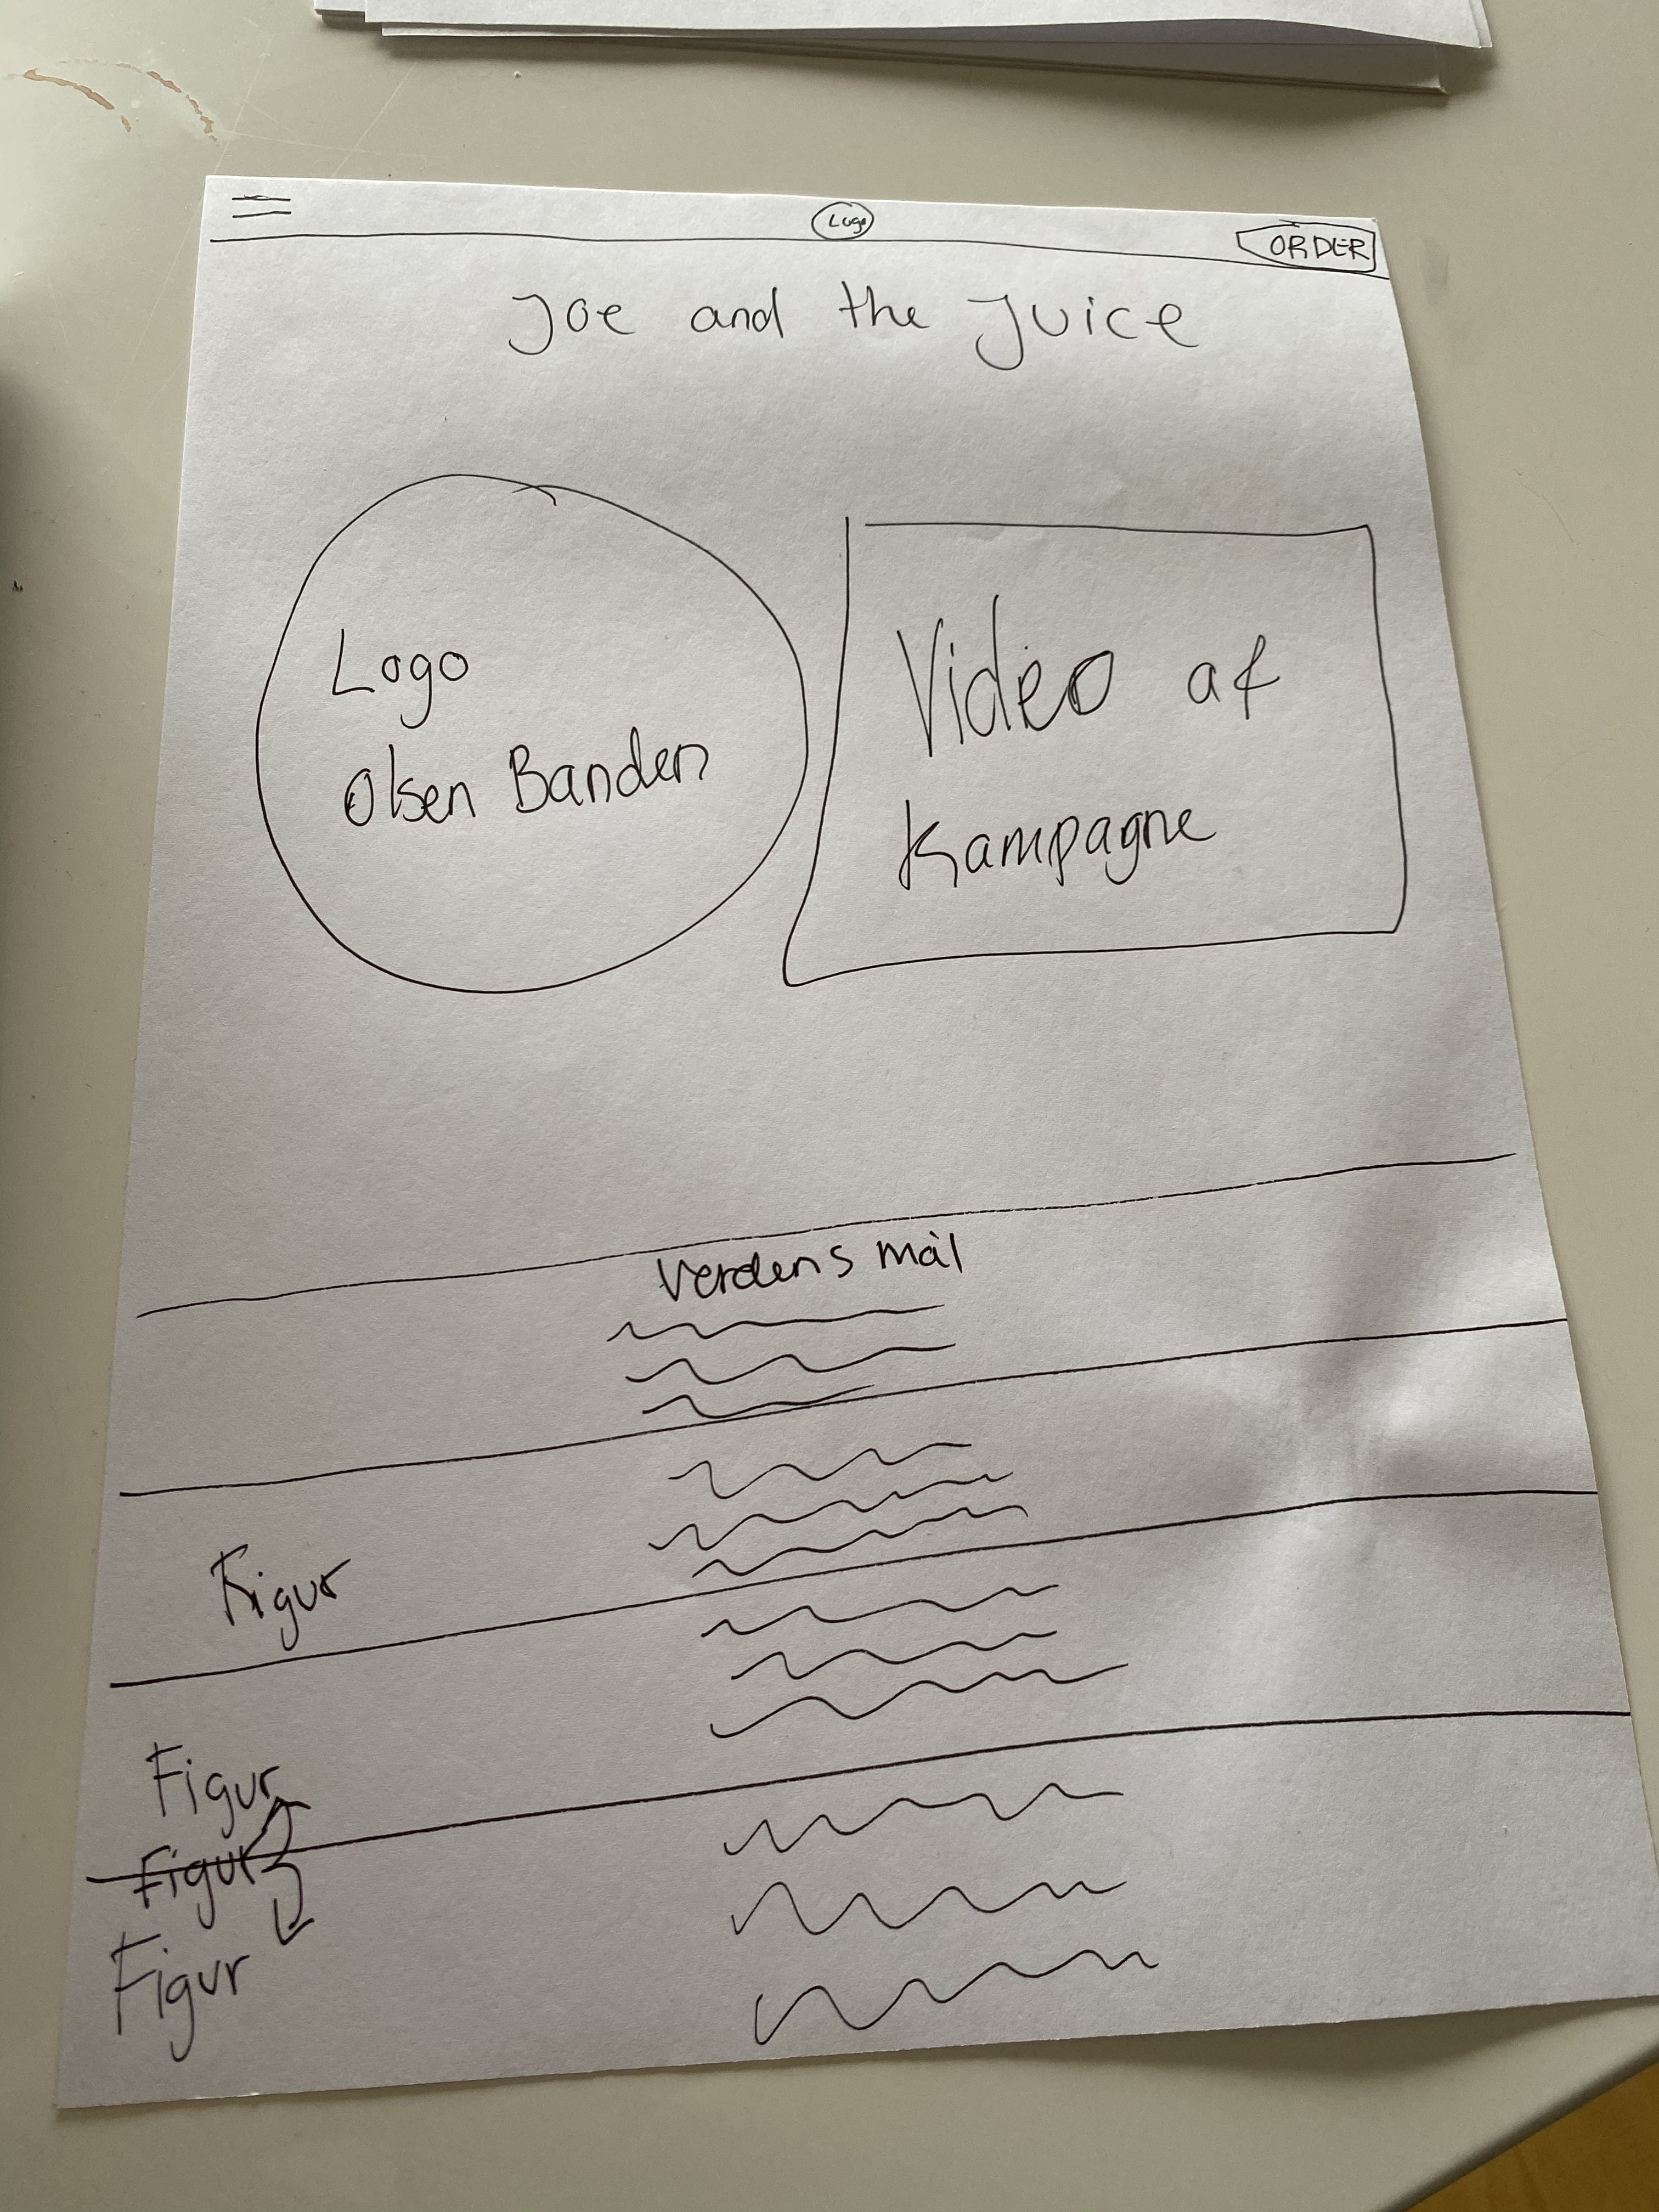 Logo
ORDER
Joe and the Juice
Logo
Olsen Banden
Video af
Kampagne
Verdens mål
Figur
Figur
Figur
Figur